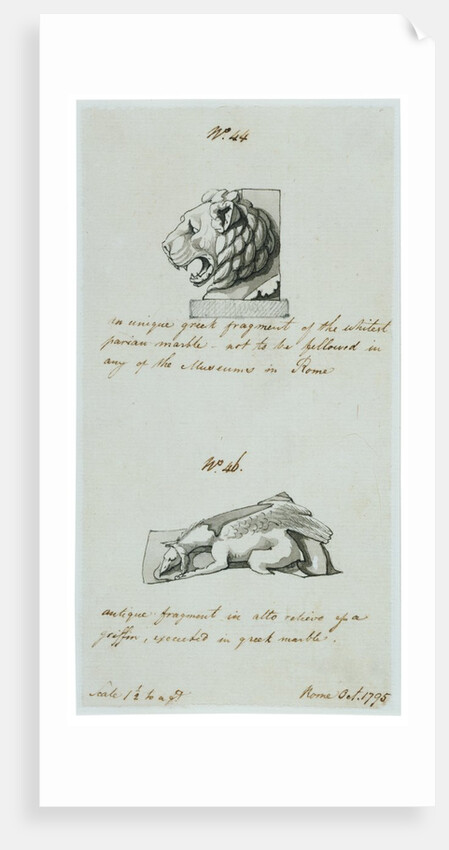 No. 44
an unique greek fragment of the whitest
parian marble - not to be fellowed in
any of the Museums in Rome
No. 46.
antique fragment in alto relievo of a
griffin, executed in greek marble.
Scale 1½ to a
Rome Oct. 1795